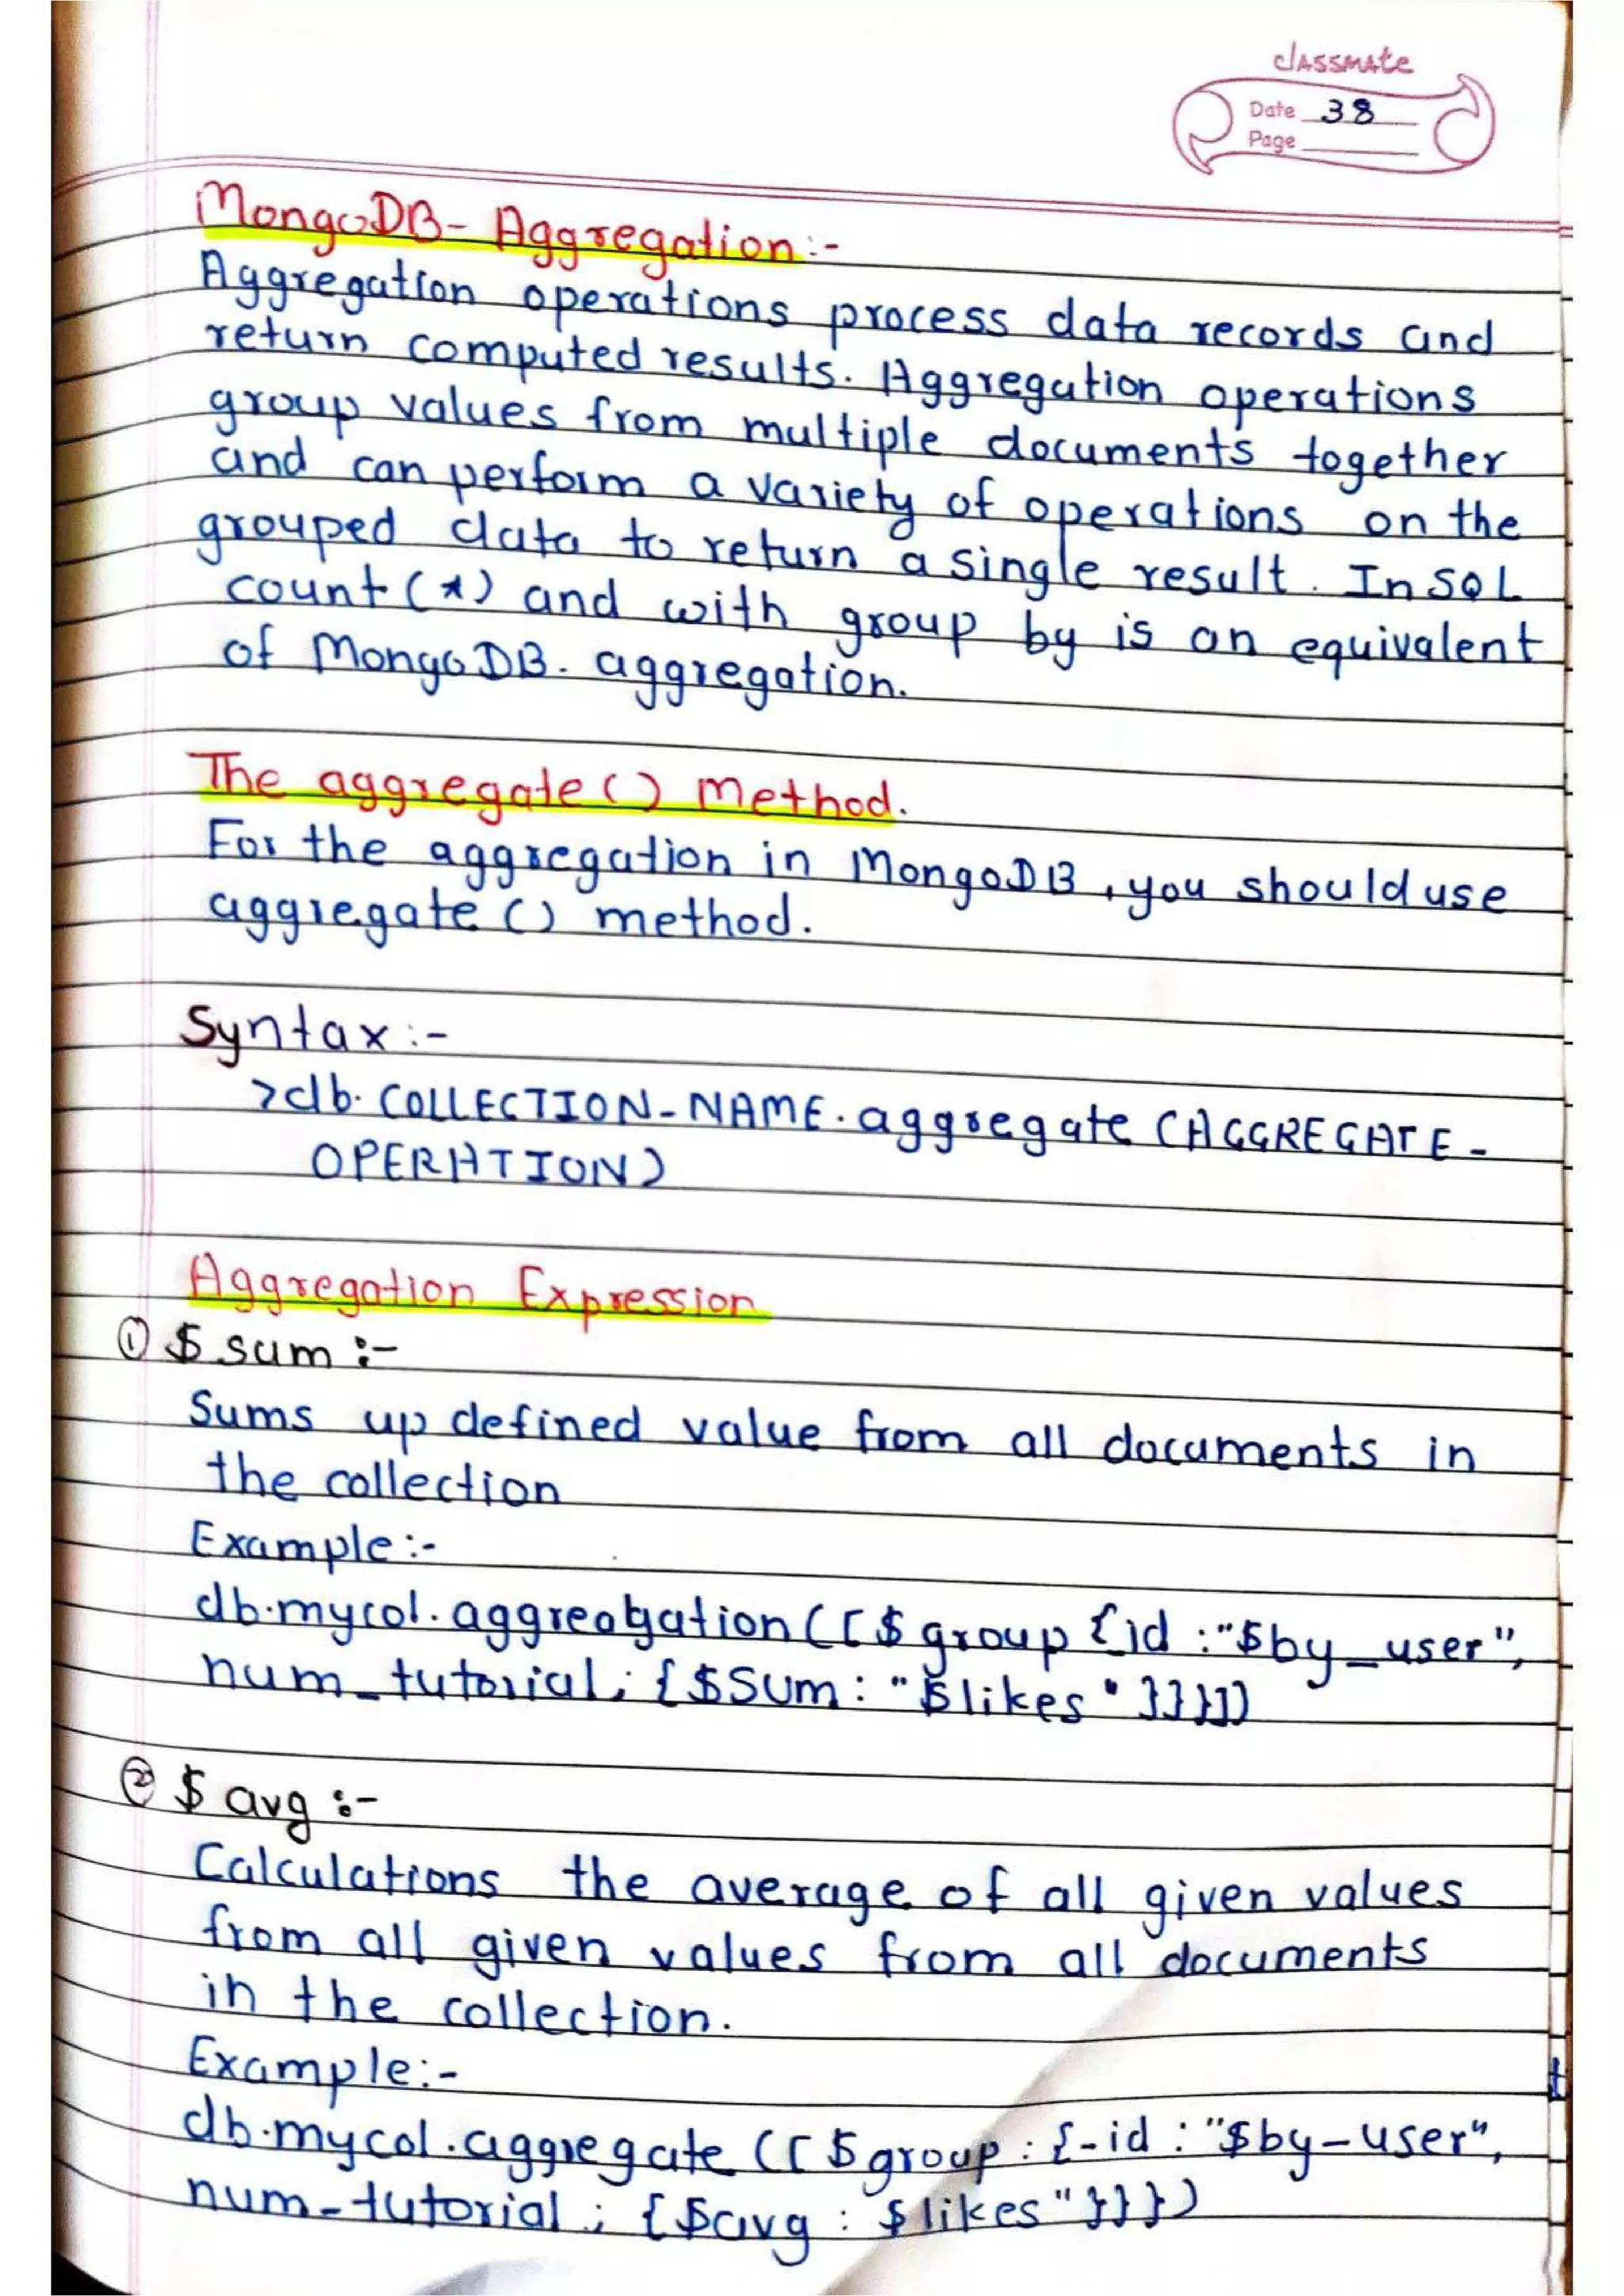 classmate
Date 38
Page
MongoDB- Aggregation:-
Aggregation operations process data records and
return computed results. Aggregation operations
group values from multiple documents together
and can perform a variety of operations on the
grouped data to return a single result. In SQL
count (*) and with group by is an equivalent
of MongoDB. aggregation.
The aggregate() Method.
For the aggregation in MongoDB, you should use
aggregate() method.
Syntax:-
>db. COLLECTION-NAME.aggregate (AGGREGATE-
OPERATION)
Aggregation Expression
① $ sum :-
Sums up defined value from all documents in
the collection
Example:-
db.mycol.aggregation ([$ group {id :"$by_user",
num_tutorial; {$sum : "$likes" }}}])
② $ avg :-
Calculations the average of all given values
from all given values from all documents
in the collection.
Example:-
db.mycol.aggregate ([$group : {-id : "$by-user",
num-tutorial ; {$avg : $likes"}}})